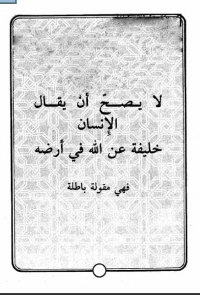 لا يصح أن يقال
الإنسان
خليفة عن الله في أرضه
فهي مقولة باطلة